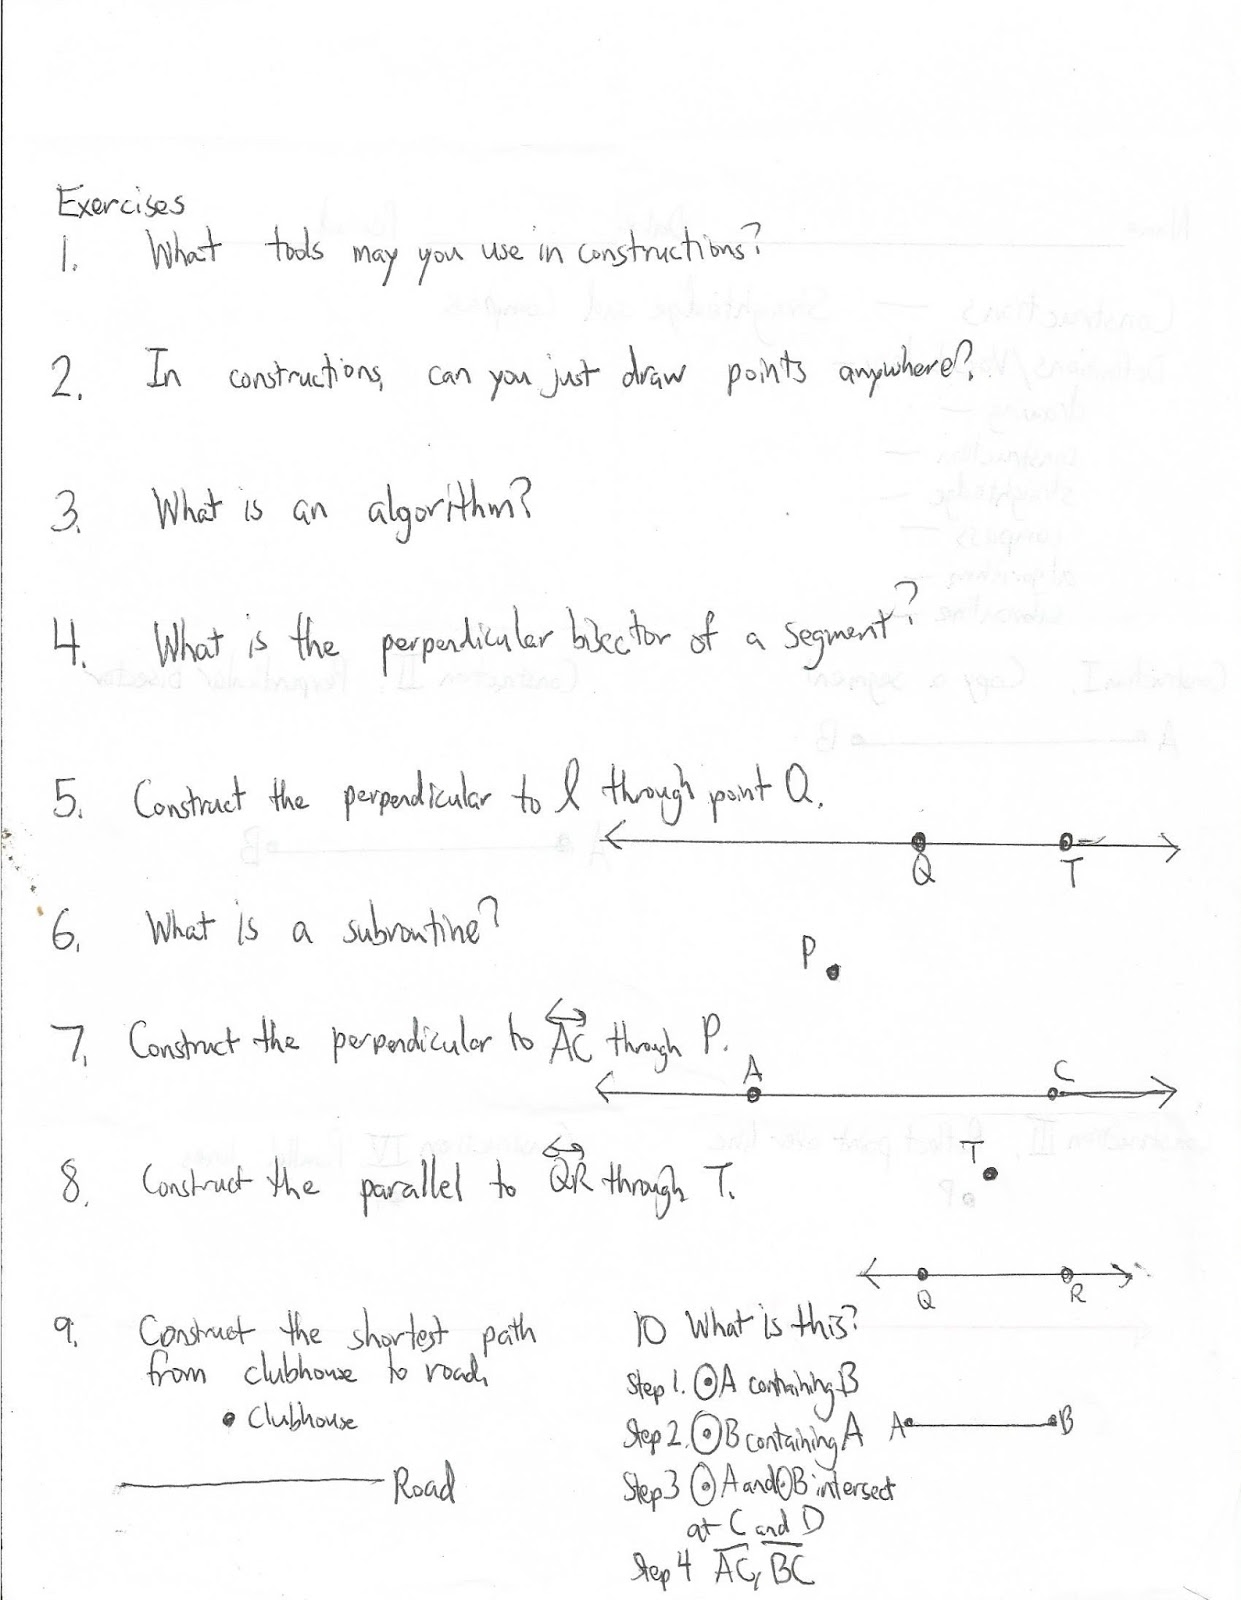 Exercises
1. What tools may you use in constructions?
2. In constructions, can you just draw points anywhere?
3. What is an algorithm?
4. What is the perpendicular bisector of a segment?
5. Construct the perpendicular to l through point Q.
Q T
6. What is a subroutine?
P
7. Construct the perpendicular to AC through P.
A C
T
8. Construct the parallel to QR through T.
Q R
9. Construct the shortest path
from clubhouse to road.
Clubhouse
Road
10 What is this?
Step 1. ⊙A containing B
Step 2. ⊙B containing A
A B
Step 3 ⊙A and ⊙B intersect
at C and D
Step 4 AC, BC